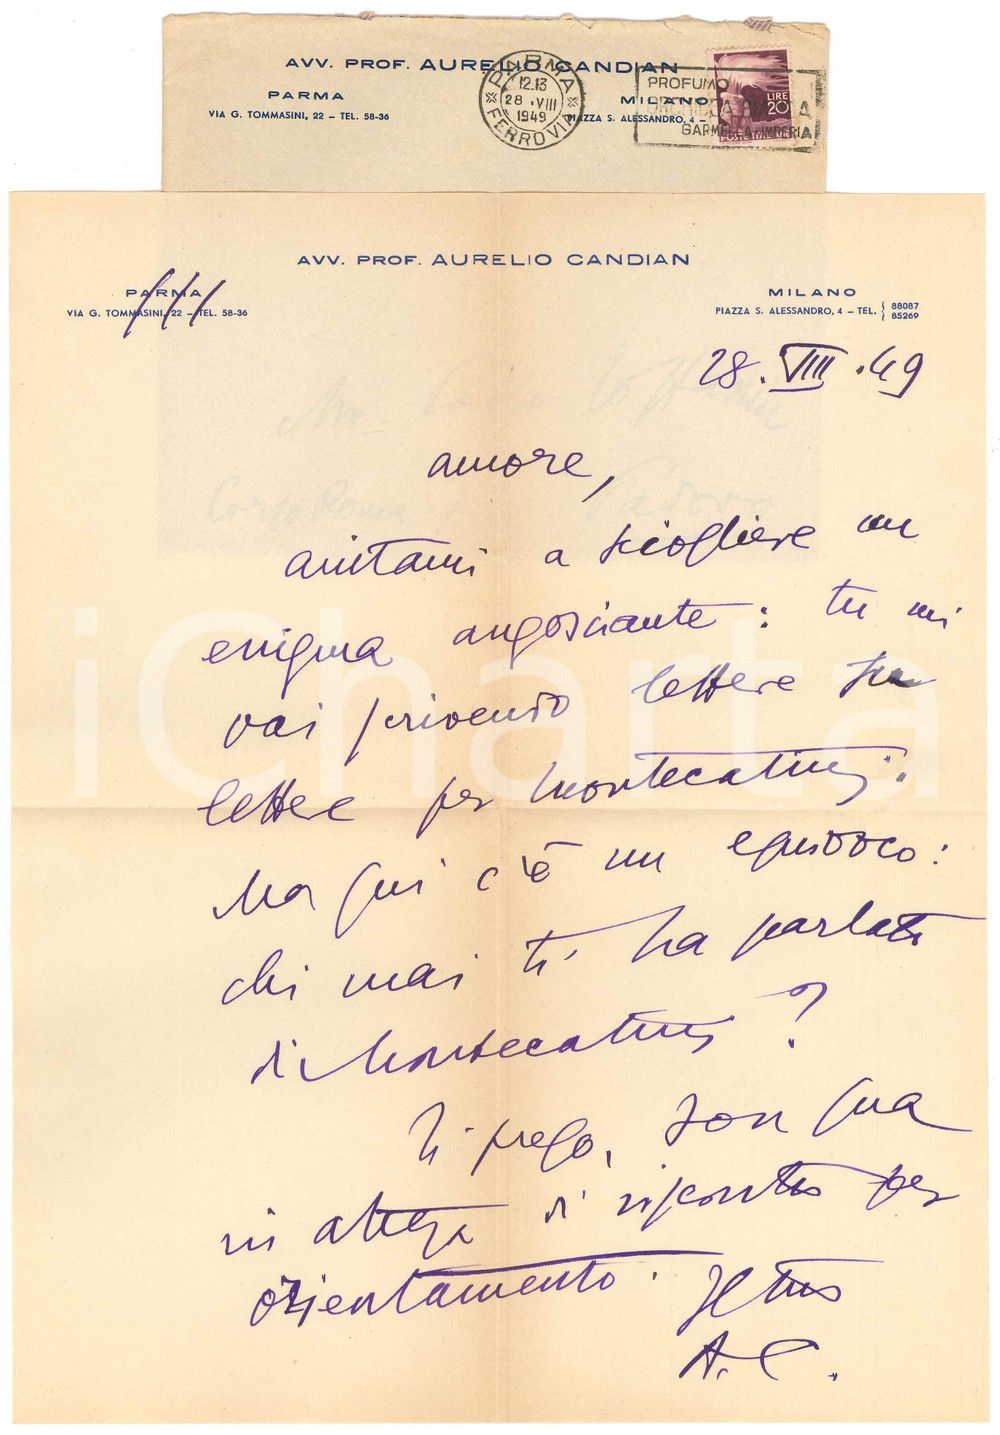 AVV. PROF. AURELIO CANDIAN
PARMA
VIA G. TOMMASINI, 22 - TEL. 58-36
MILANO
PIAZZA S. ALESSANDRO, 4 -
PARMA
12.13
28.VIII
1949
FERROVIA
PROFUMO
GARMELLA IMPERIA
LIRE
20
AVV. PROF. AURELIO CANDIAN
PARMA
VIA G. TOMMASINI, 22 - TEL. 58-36
MILANO
PIAZZA S. ALESSANDRO, 4 - TEL. 88087
85269
28.VIII.49
amore,
aiutami a sciogliere un
enigma angosciante: tu mi
vai scrivendo lettere su
lettere per Montecatini.
Ma qui c'è un equivoco:
chi mai ti ha parlato
di Montecatini?
Ti prego, son qua
in attesa di riscontro per
orientamento. Il tuo
A.C.
Corso Roma
Padova
iCharta